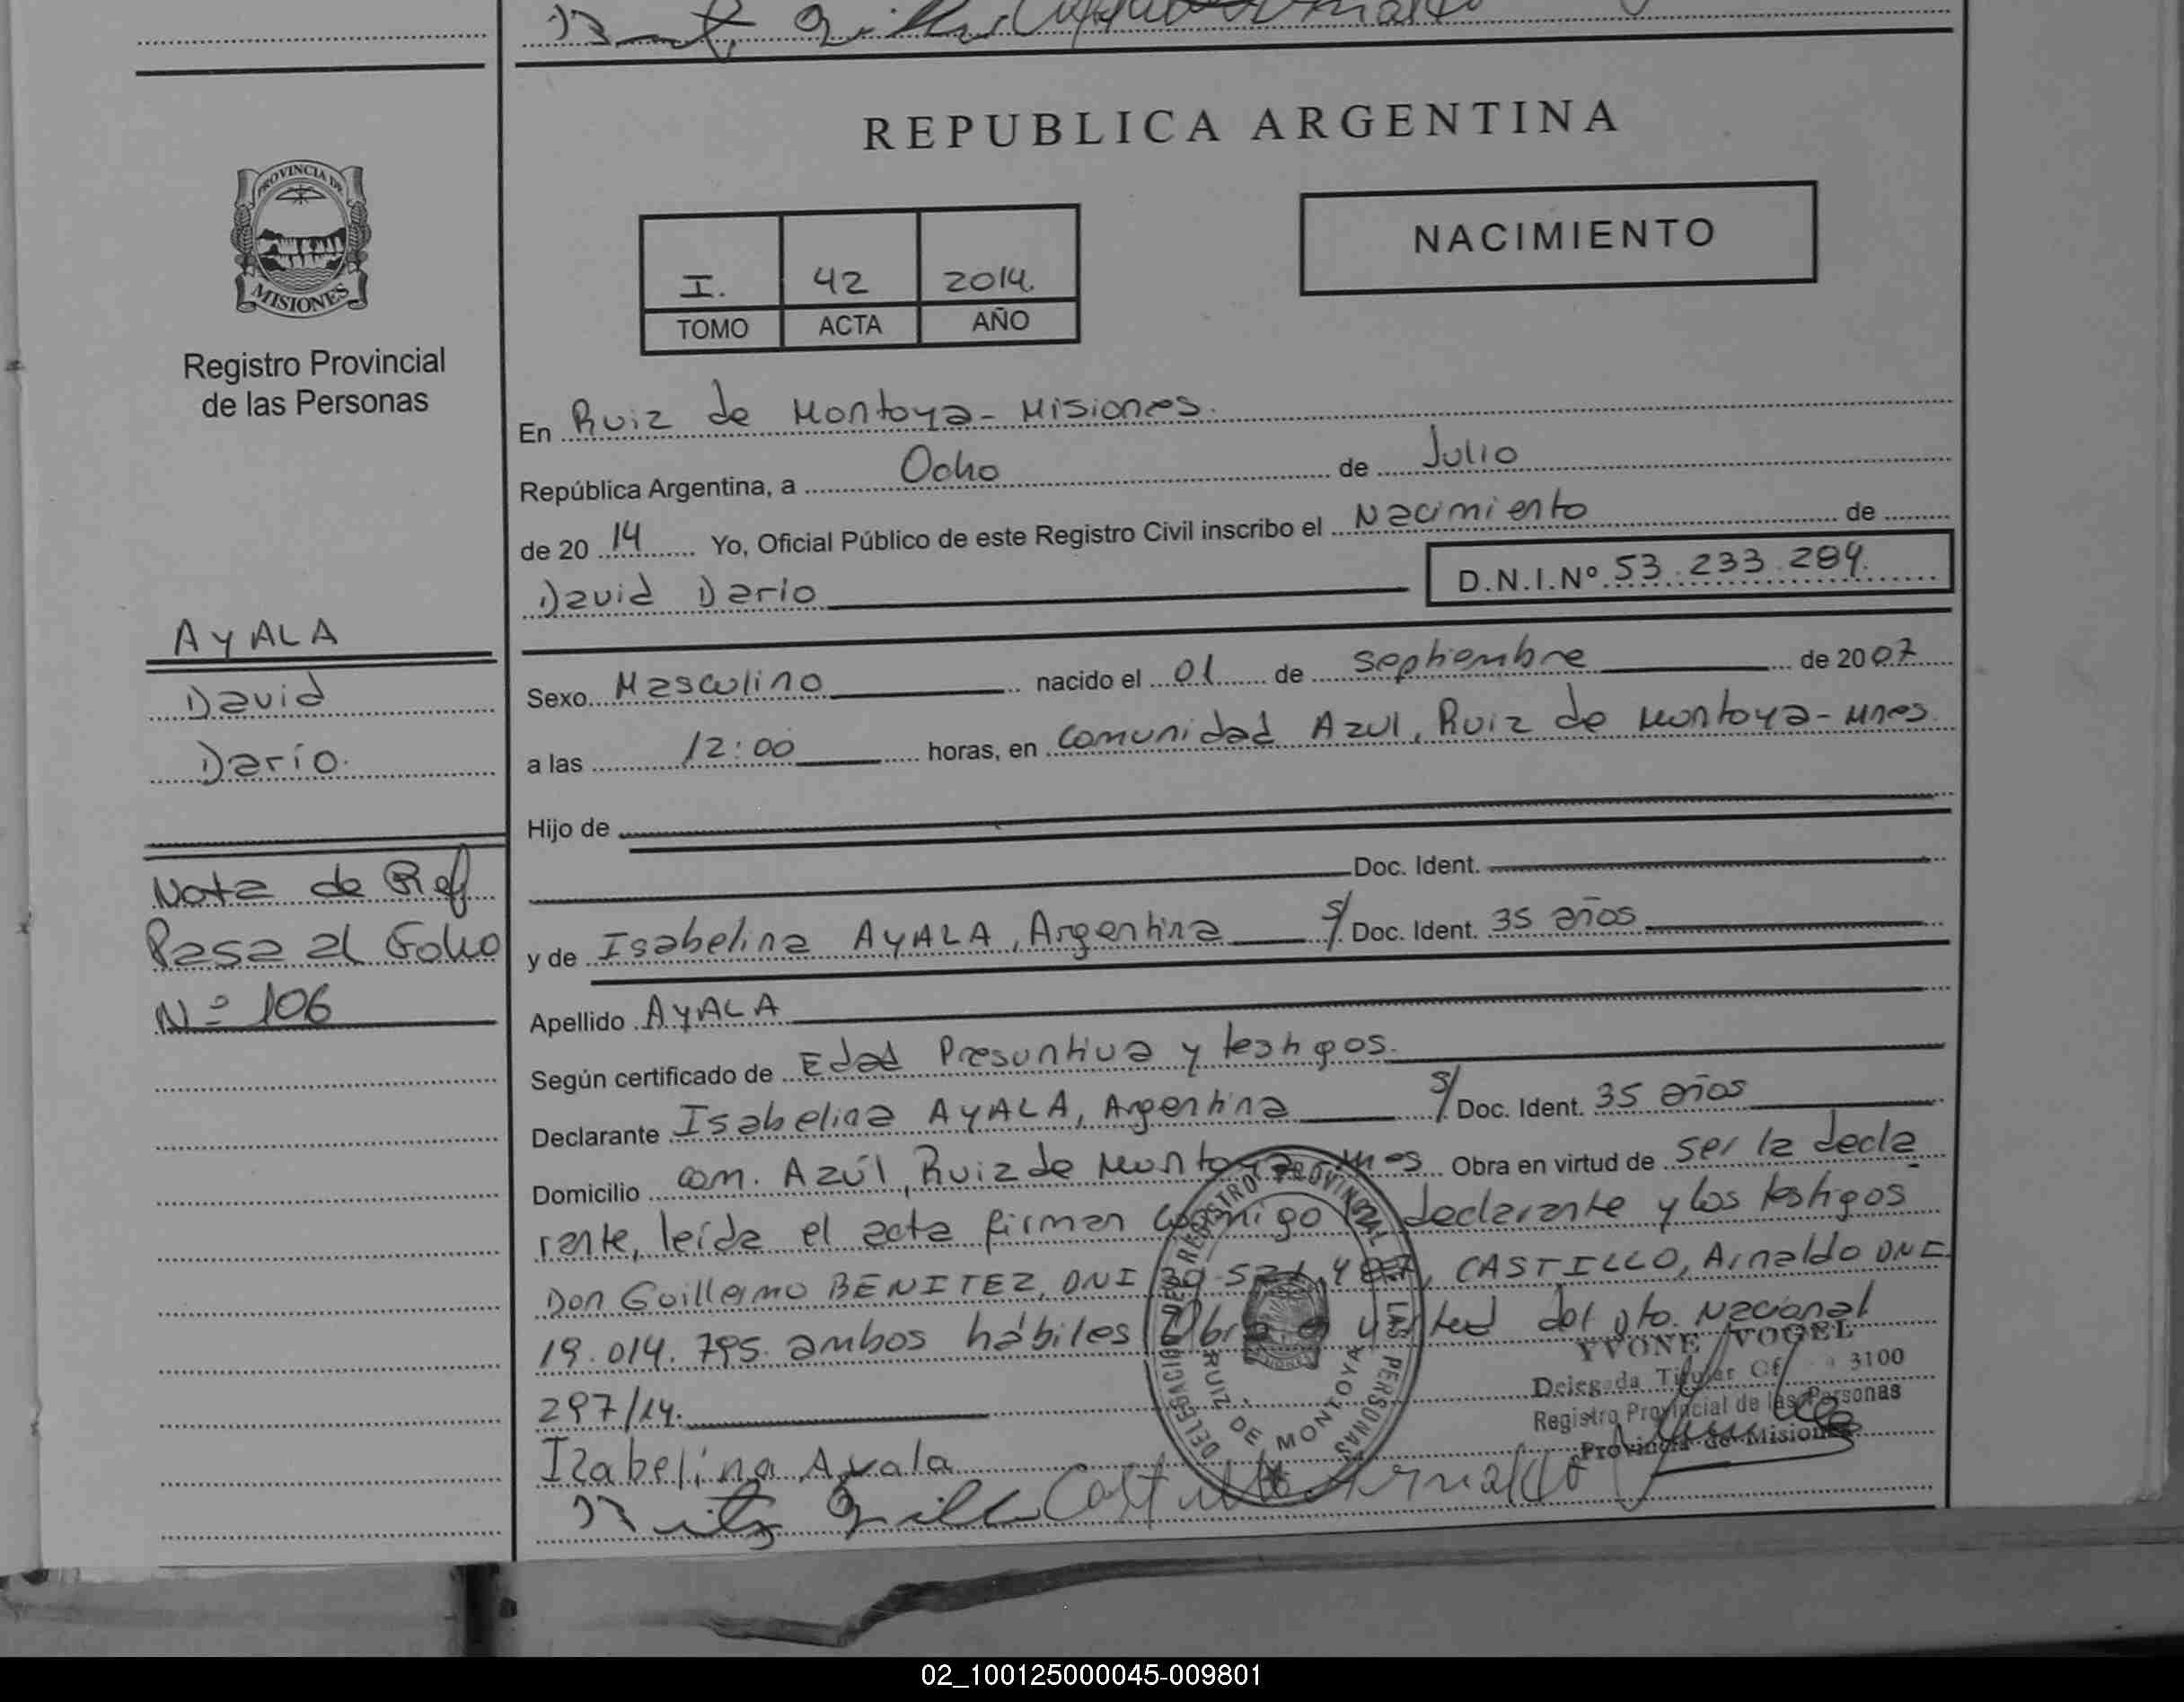 REPUBLICA ARGENTINA
PROVINCIA DE
MISIONES
Registro Provincial
de las Personas
NACIMIENTO
I. 42 2014.
TOMO ACTA AÑO
En Ruiz de Montoya - Misiones.
República Argentina, a Ocho de Julio
de 20 14 Yo, Oficial Público de este Registro Civil inscribo el Nacimiento de
David Darío D.N.I.Nº 53.233.284.
AYALA
David
Darío.
Sexo Masculino nacido el 01 de septiembre de 2007
a las 12:00 horas, en Comunidad Azul, Ruiz de Montoya - Mnes.
Hijo de
Doc. Ident.
Nota de Ref
Pasa al Folio
Nº 106
y de Isabelina AYALA, Argentina s/ Doc. Ident. 35 años
Apellido AYALA
Según certificado de Edad Presuntiva y testigos.
Declarante Isabelina AYALA, Argentina s/ Doc. Ident. 35 años
Domicilio com. Azúl, Ruiz de Montoya Mnes Obra en virtud de ser la decla
rante, leída el acta firman conmigo la declarante y los testigos
Don Guillermo BENITEZ, DNI CASTILLO, Arnaldo DNI
19.014.795. ambos hábiles Obra virtud del dto. Nacional
297/14.
YVONE VOGEL
Delegada Titular Of 3100
Registro Provincial de las Personas
Provincia de Misiones
DELEGACION DEL REGISTRO PROVINCIAL DE LAS PERSONAS
RUIZ DE MONTOYA
Izabelina Ayala
Castillo Arnaldo
02_100125000045-009801